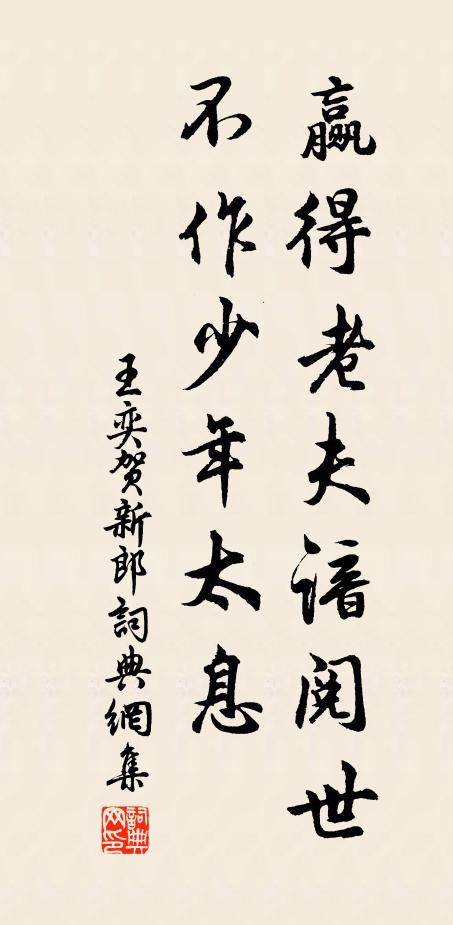 赢得老夫谙阅世
不作少年太息
王奕贺新郎詞典網集
詞典网印